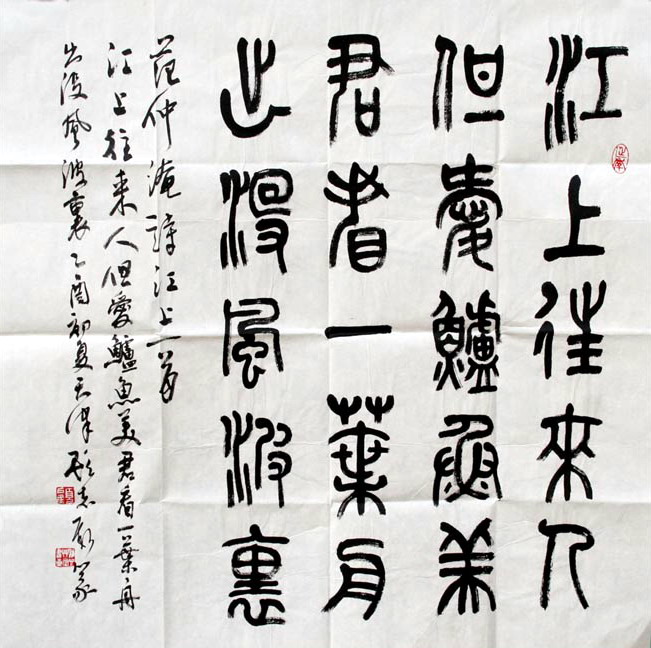 江上往來人
但愛鱸魚美
君看一葉舟
出沒風波裏
范仲淹詩江上一首
江上往来人但愛鱸魚美君看一葉舟
出没風波裏乙酉初夏天津